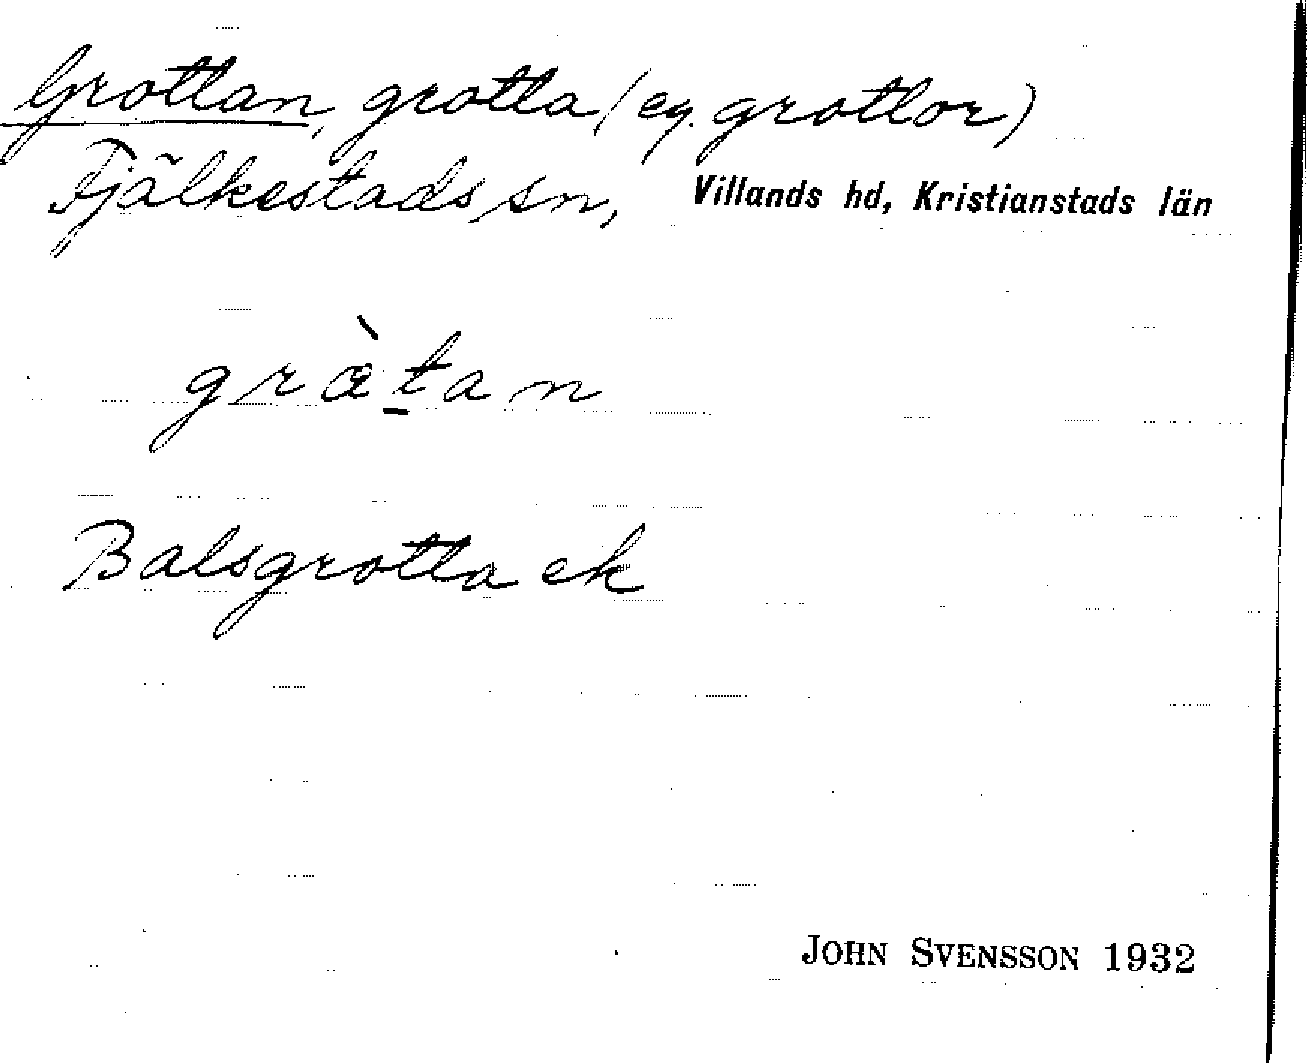 Grottan, grotta (eg. grottor)
Fjälkestads sn, Villands hd, Kristianstads län
græ̀t̠an
Balsgrotta ek
JOHN SVENSSON 1932